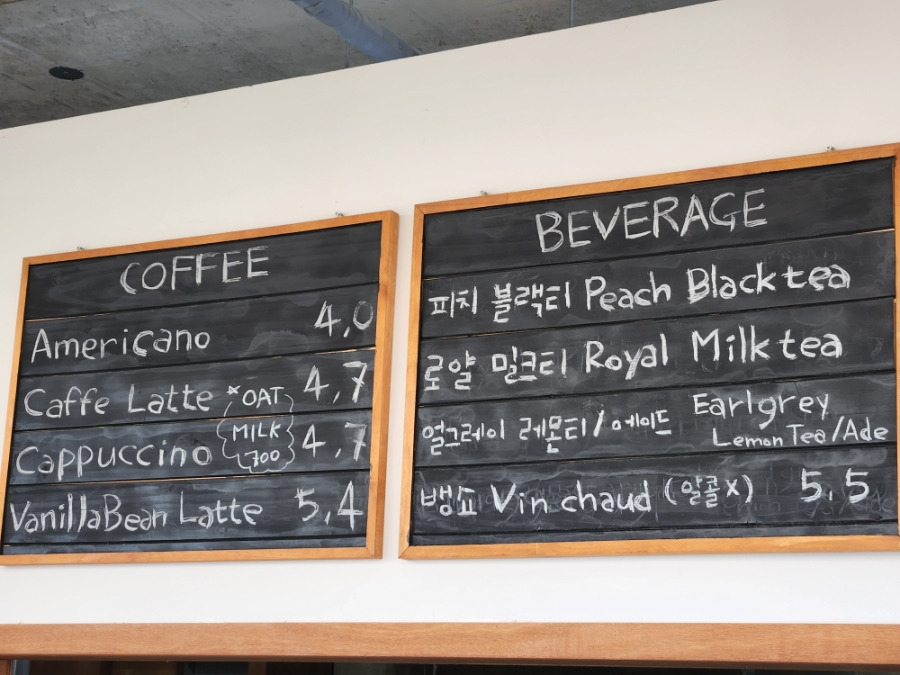 COFFEE
Americano 4,0
Caffe Latte *OAT 4,7
MILK
Cappuccino 700 4,7
VanillaBean Latte 5,4
BEVERAGE
피치 블랙티 Peach Black tea
로얄 밀크티 Royal Milk tea
얼그레이 레몬티/에이드 Earlgrey
Lemon Tea/Ade
뱅쇼 Vin chaud (알콜X) 5,5